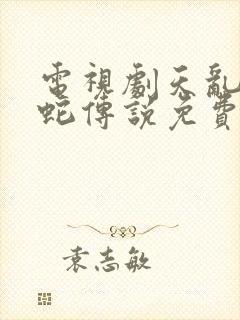 電視劇天亂
蛇傳說免費
袁志敏